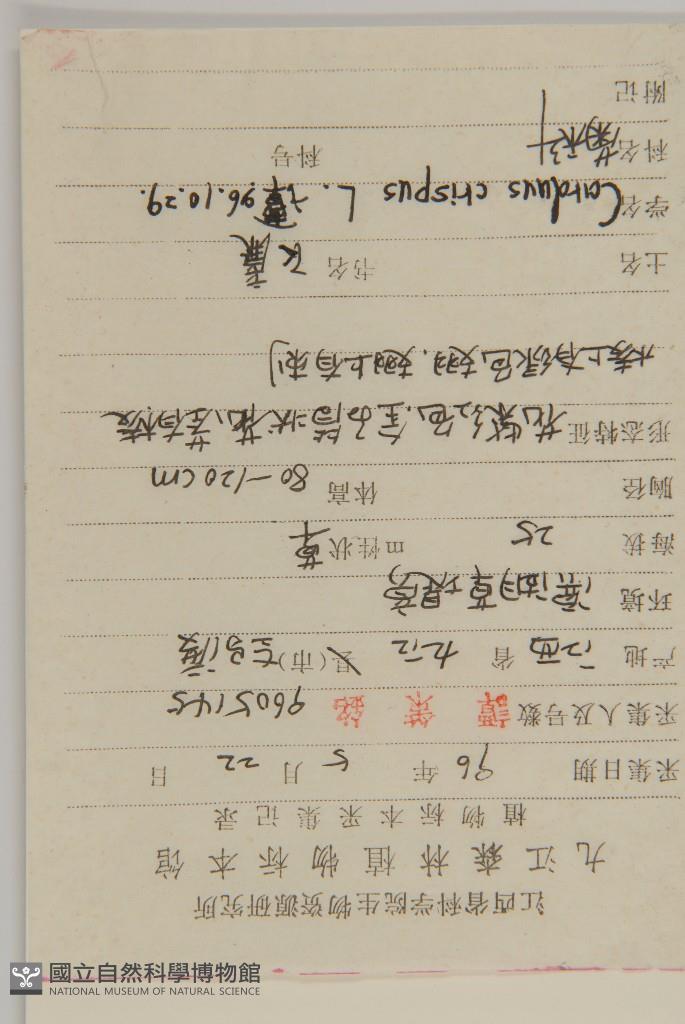 江西省科学院生物资源研究所
九江森林植物标本馆
植物标本采集记录
采集日期 96 年 5 月 22 日
采集人及号数 譚策銘 9605145
产地 江西 省 九江 县(市)
环境
海拔 25 m 性状 草
胸径 体高 80—120cm
形态特征 花紫红色,全为筒状花,茎有棱
棱上有绿色翅,翅上有刺
土名 书名 飞廉
学名 Carduus crispus L. 譚 96.10.29.
科名 菊科 科号
附记
國立自然科學博物館
NATIONAL MUSEUM OF NATURAL SCIENCE